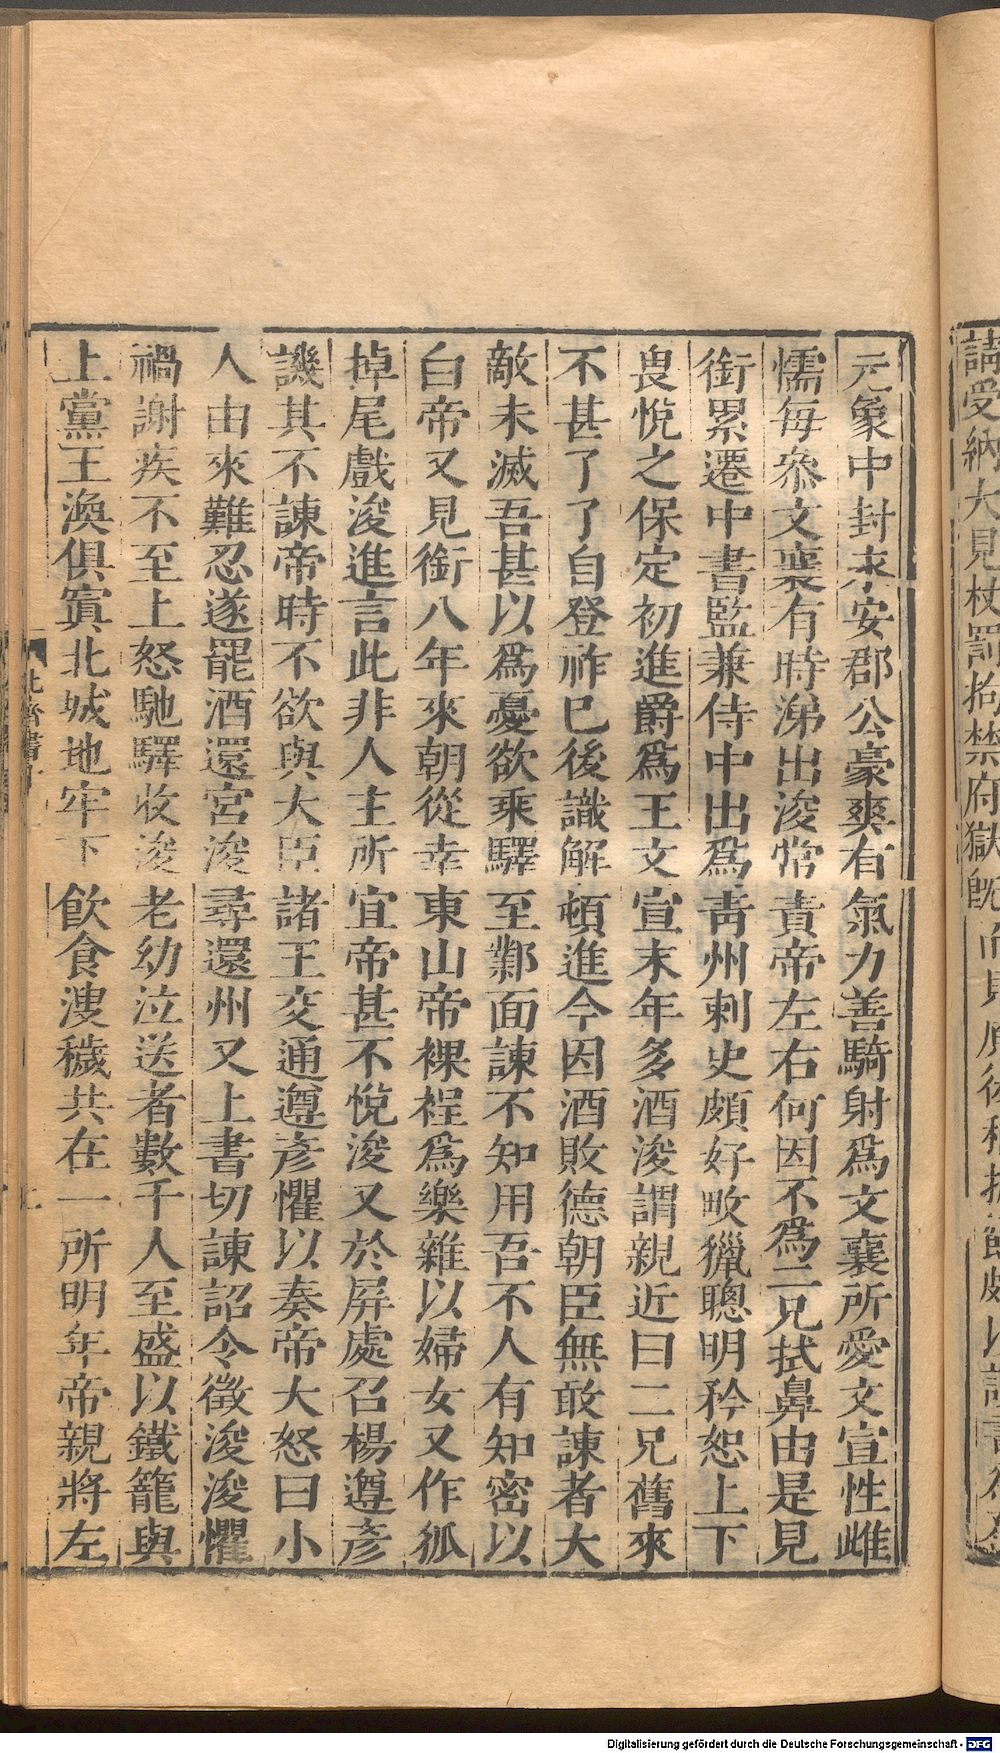 元象中封永安郡公豪爽有氣力善騎射爲文襄所愛文宣性雌
懦每叅文襄有時涕出浚常責帝左右何因不爲二兄拭鼻由是見
銜累遷中書監兼侍中出爲靑州刺史頗好畋獵聰明矜恕上下
畏悅之保定初進爵爲王文宣末年多酒浚謂親近曰二兄舊來
不甚了了自登祚已後識解頓進今因酒敗德朝臣無敢諫者大
敵未滅吾甚以爲憂欲乘驛至鄴面諫不知用吾不人有知密以
白帝又見銜八年來朝從幸東山帝裸裎爲樂雜以婦女又作狐
掉尾戲浚進言此非人主所宜帝甚不悅浚又於屏處召楊遵彦
譏其不諫帝時不欲與大臣諸王交通遵彦懼以奏帝大怒曰小
人由來難忍遂罷酒還宮浚尋還州又上書切諫詔令徵浚浚懼
禍謝疾不至上怒馳驛收浚老幼泣送者數千人至盛以鐵籠與
上黨王渙俱寘北城地牢下飮食溲穢共在一所明年帝親將左
請受納大見杖罰拘禁府獄旣
Digitalisierung gefördert durch die Deutsche Forschungsgemeinschaft - DFG